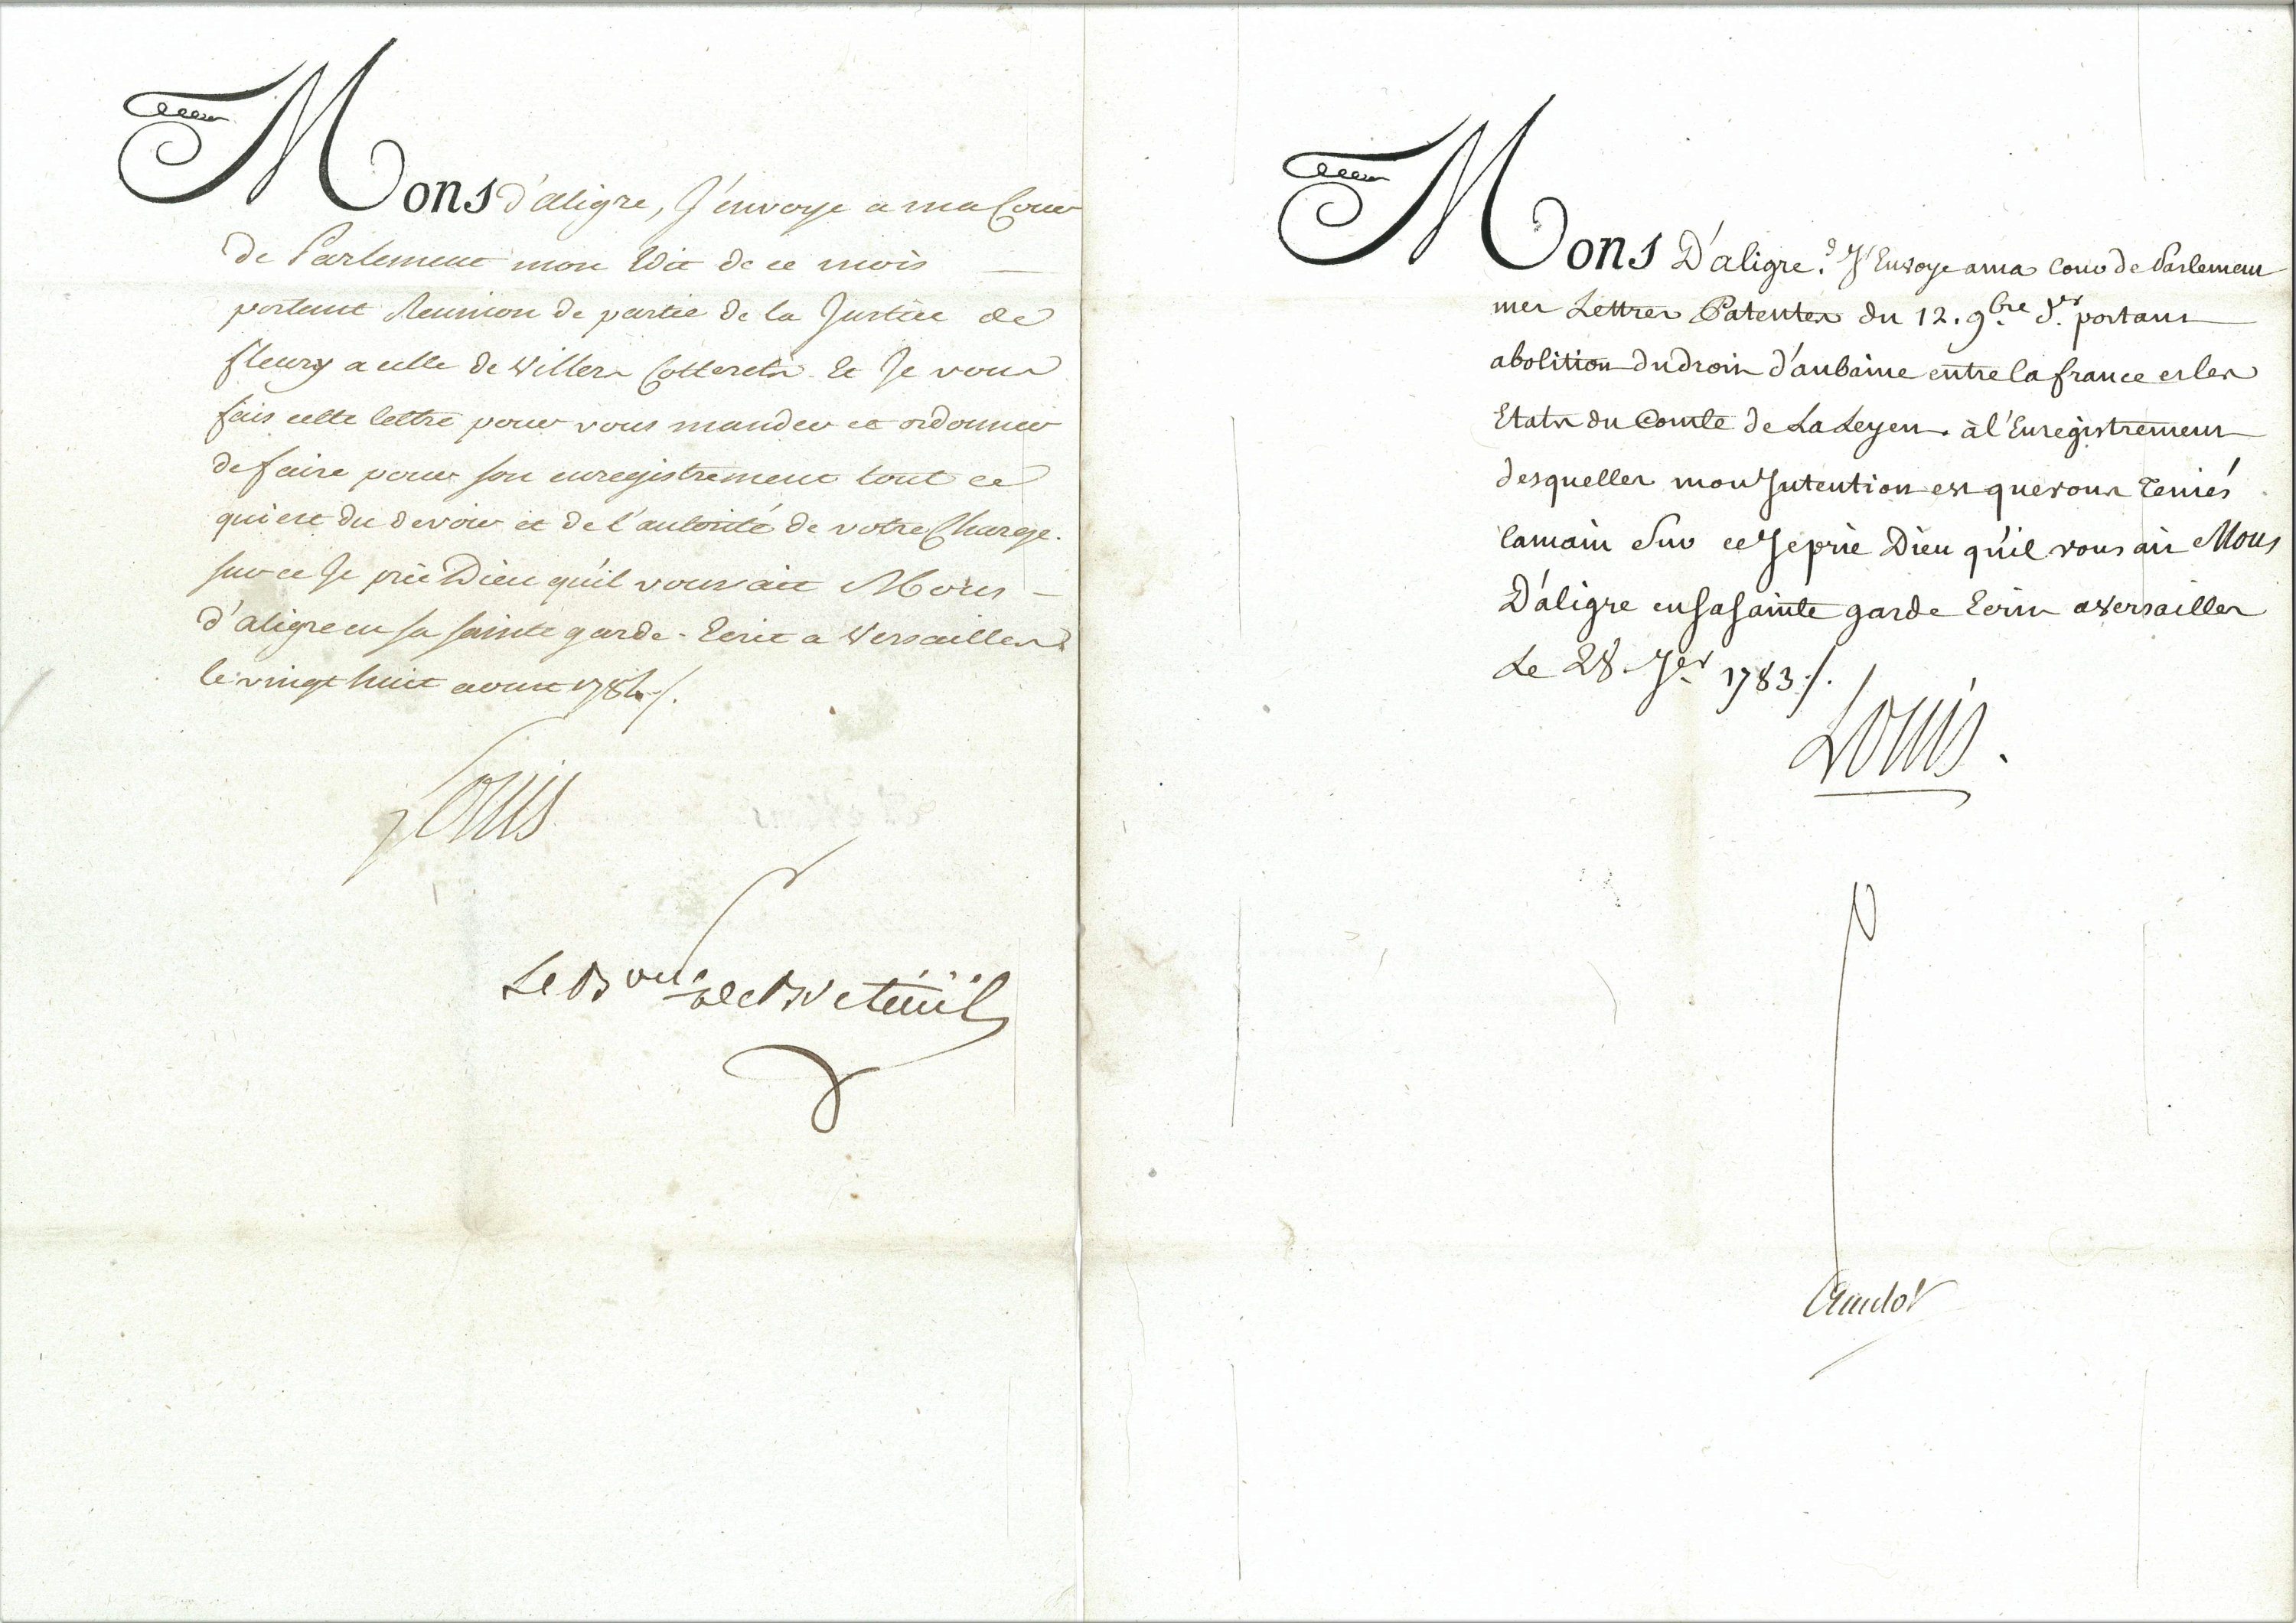 Mons d'aligre, J'envoye a ma Cour
de Parlement mon Edit de ce mois
portant Reunion de partie de la Justice de
fleury a celle de Villers Cotterets. Et Je vous
fais cette lettre pour vous mander et ordonner
de faire pour son enregistrement tout ce
qui est du devoir et de l'autorité de votre Charge.
sur ce Je prie Dieu qu'il vous ait Mons
d'aligre en sa sainte garde. Ecrit a Versailles
le vingt huit aoust 1784./.
Louis
Le Bon de Breteüil
Mons D'aligre. J'Envoye a ma Cour de Parlement
mes Lettres Patentes du 12. 9.bre d.er portant
abolition du droit d'aubaine entre la france et les
Etats du Comte de La Leyen. à l'Enregistrement
desquelles mon Intention est que vous teniés
la main Sur ce Je prie Dieu qu'il vous ait Mons
D'aligre en sa sainte garde Ecrit a Versailles
Le 28. J.er 1783./.
Louis.